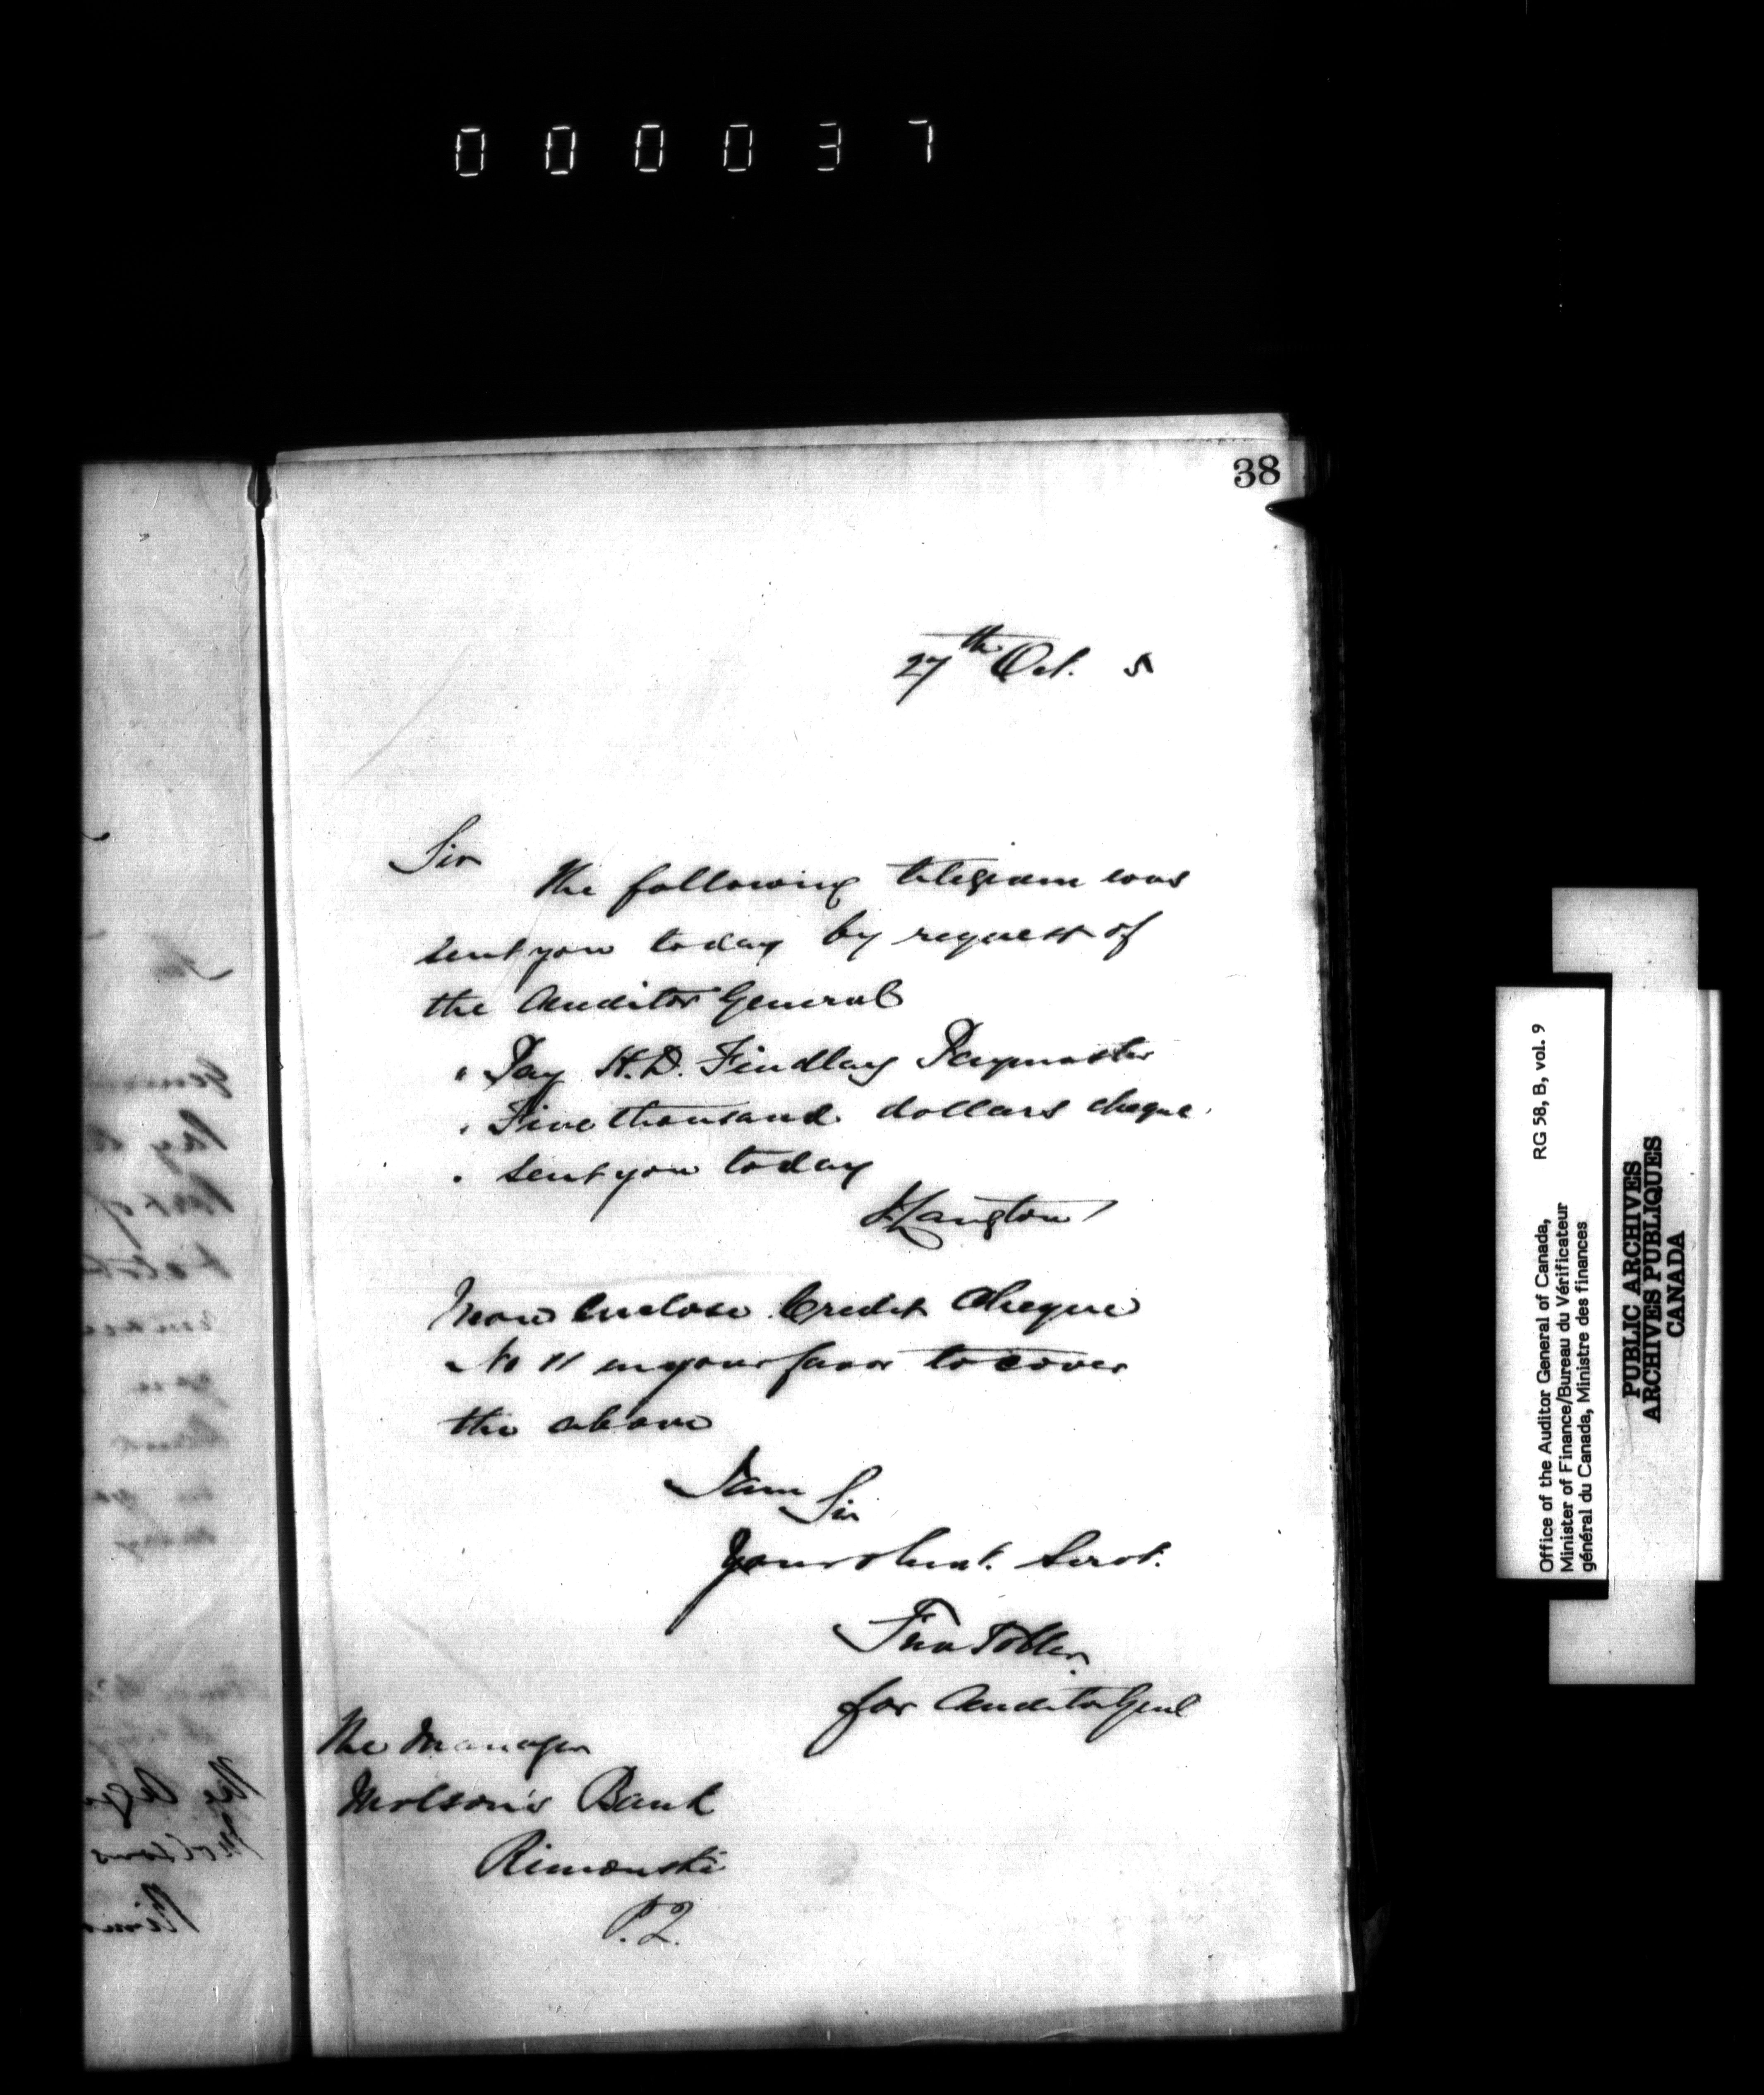 000037
38
27th Oct. 5
Sir
The following telegram was
sent you today by request of
the Auditor General
" Pay H.D. Findlay Paymaster
" Five thousand dollars cheque
" sent you today
J Langton
I now enclose Credit Cheque
No 11 in your favor to cover
the above
I am
Sir
Your obent. Servt.
for Auditor Genl
The Manager
Molson's Bank
Rimouski
P.Q.
Office of the Auditor General of Canada, RG 58, B, vol. 9
Minister of Finance/Bureau du Vérificateur
général du Canada, Ministre des finances
PUBLIC ARCHIVES
ARCHIVES PUBLIQUES
CANADA